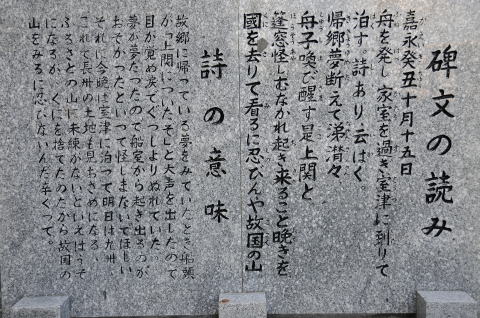 碑文の読み
嘉永癸丑十月十五日
舟を発し家室を過ぎ室津に到りて
泊す。詩あり、云はく。
帰郷夢断えて涕潸々
舟子喚び醒す是上関と
篷窓怪しむなかれ起き来ること晩きを
國を去りて看るに忍びんや故国の山
詩の意味
故郷に帰っている夢をみていたとき船頭
がっ上関についたぞ」と大声を出したので
目が覚め涙でぐっしょりぬれていた。
夢が夢だったので船室から起き出るのが
おそかったといって怪しまないでほしい
それに今晩は室津に泊って明日は九州、
これで長州の土地も見おさめになる、
ふるさとの山に未練がないといえばうそ
になるが、くにを捨てたのだから故国の
山をみるに忍びないんだ辛くって。